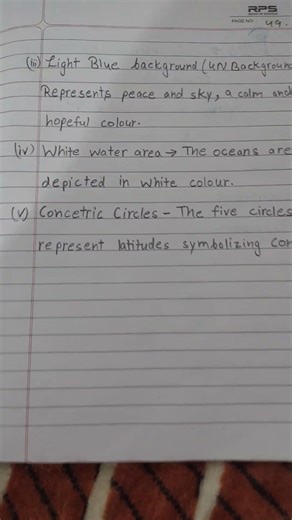 RPS
PAGE NO. 49.
(iii) Light Blue background (UN Background
Represents peace and sky, a calm and
hopeful colour.
(iv) White water area → The oceans are
depicted in white colour.
(v) Concetric Circles - The five circles
represent latitudes symbolizing con